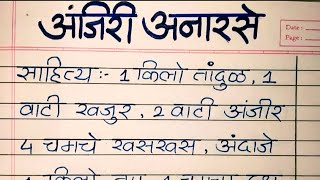 अंजिरी अनारसे
Date :-
Page :-
साहित्य :- 1 किलो तांदुळ, 1
वाटी खजुर, 2 वाटी अंजीर
4 चमचे खसखस, अंदाजे